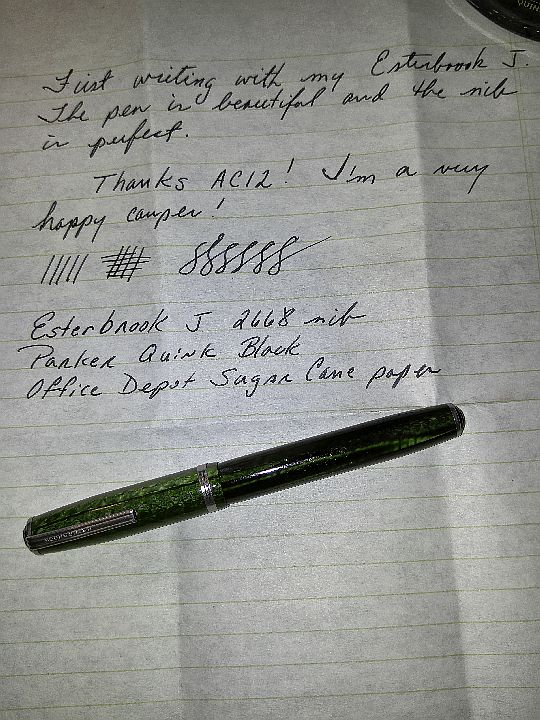 QUIN
First writing with my Esterbrook J.
The pen is beautiful and the nib
is perfect.
Thanks AC12! I'm a very
happy camper!
Esterbrook J 2668 nib
Parker Quink Black
Office Depot Sugar Cane paper
ESTERBROOK